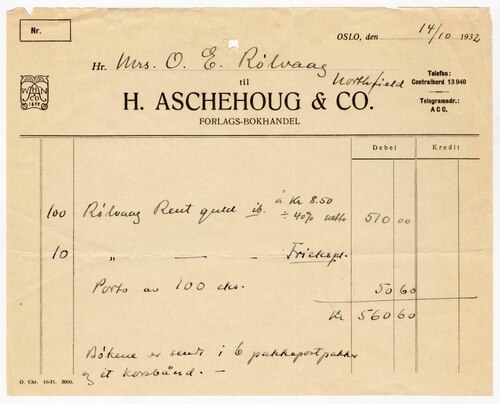 Nr.
OSLO, den 14/10 1932
Hr. Mrs. O. E. Rølvaag
Northfield
til
H. ASCHEHOUG & CO.
FORLAGS-BOKHANDEL
Telefon:
Centralbord 13940
Telegramadr.:
ACO.
1872
Debet Kredit
100 Rølvaag Rent guld ib. á Kr 8.50
÷ 40% netto 510 00
10 " — — Friekspl.
Porto av 100 eks. 50 60
Kr 560 60
Bökene er sendt i 6 pakkepostpakker
og et korsbånd. —
O. Chr. 10-31. 3000.